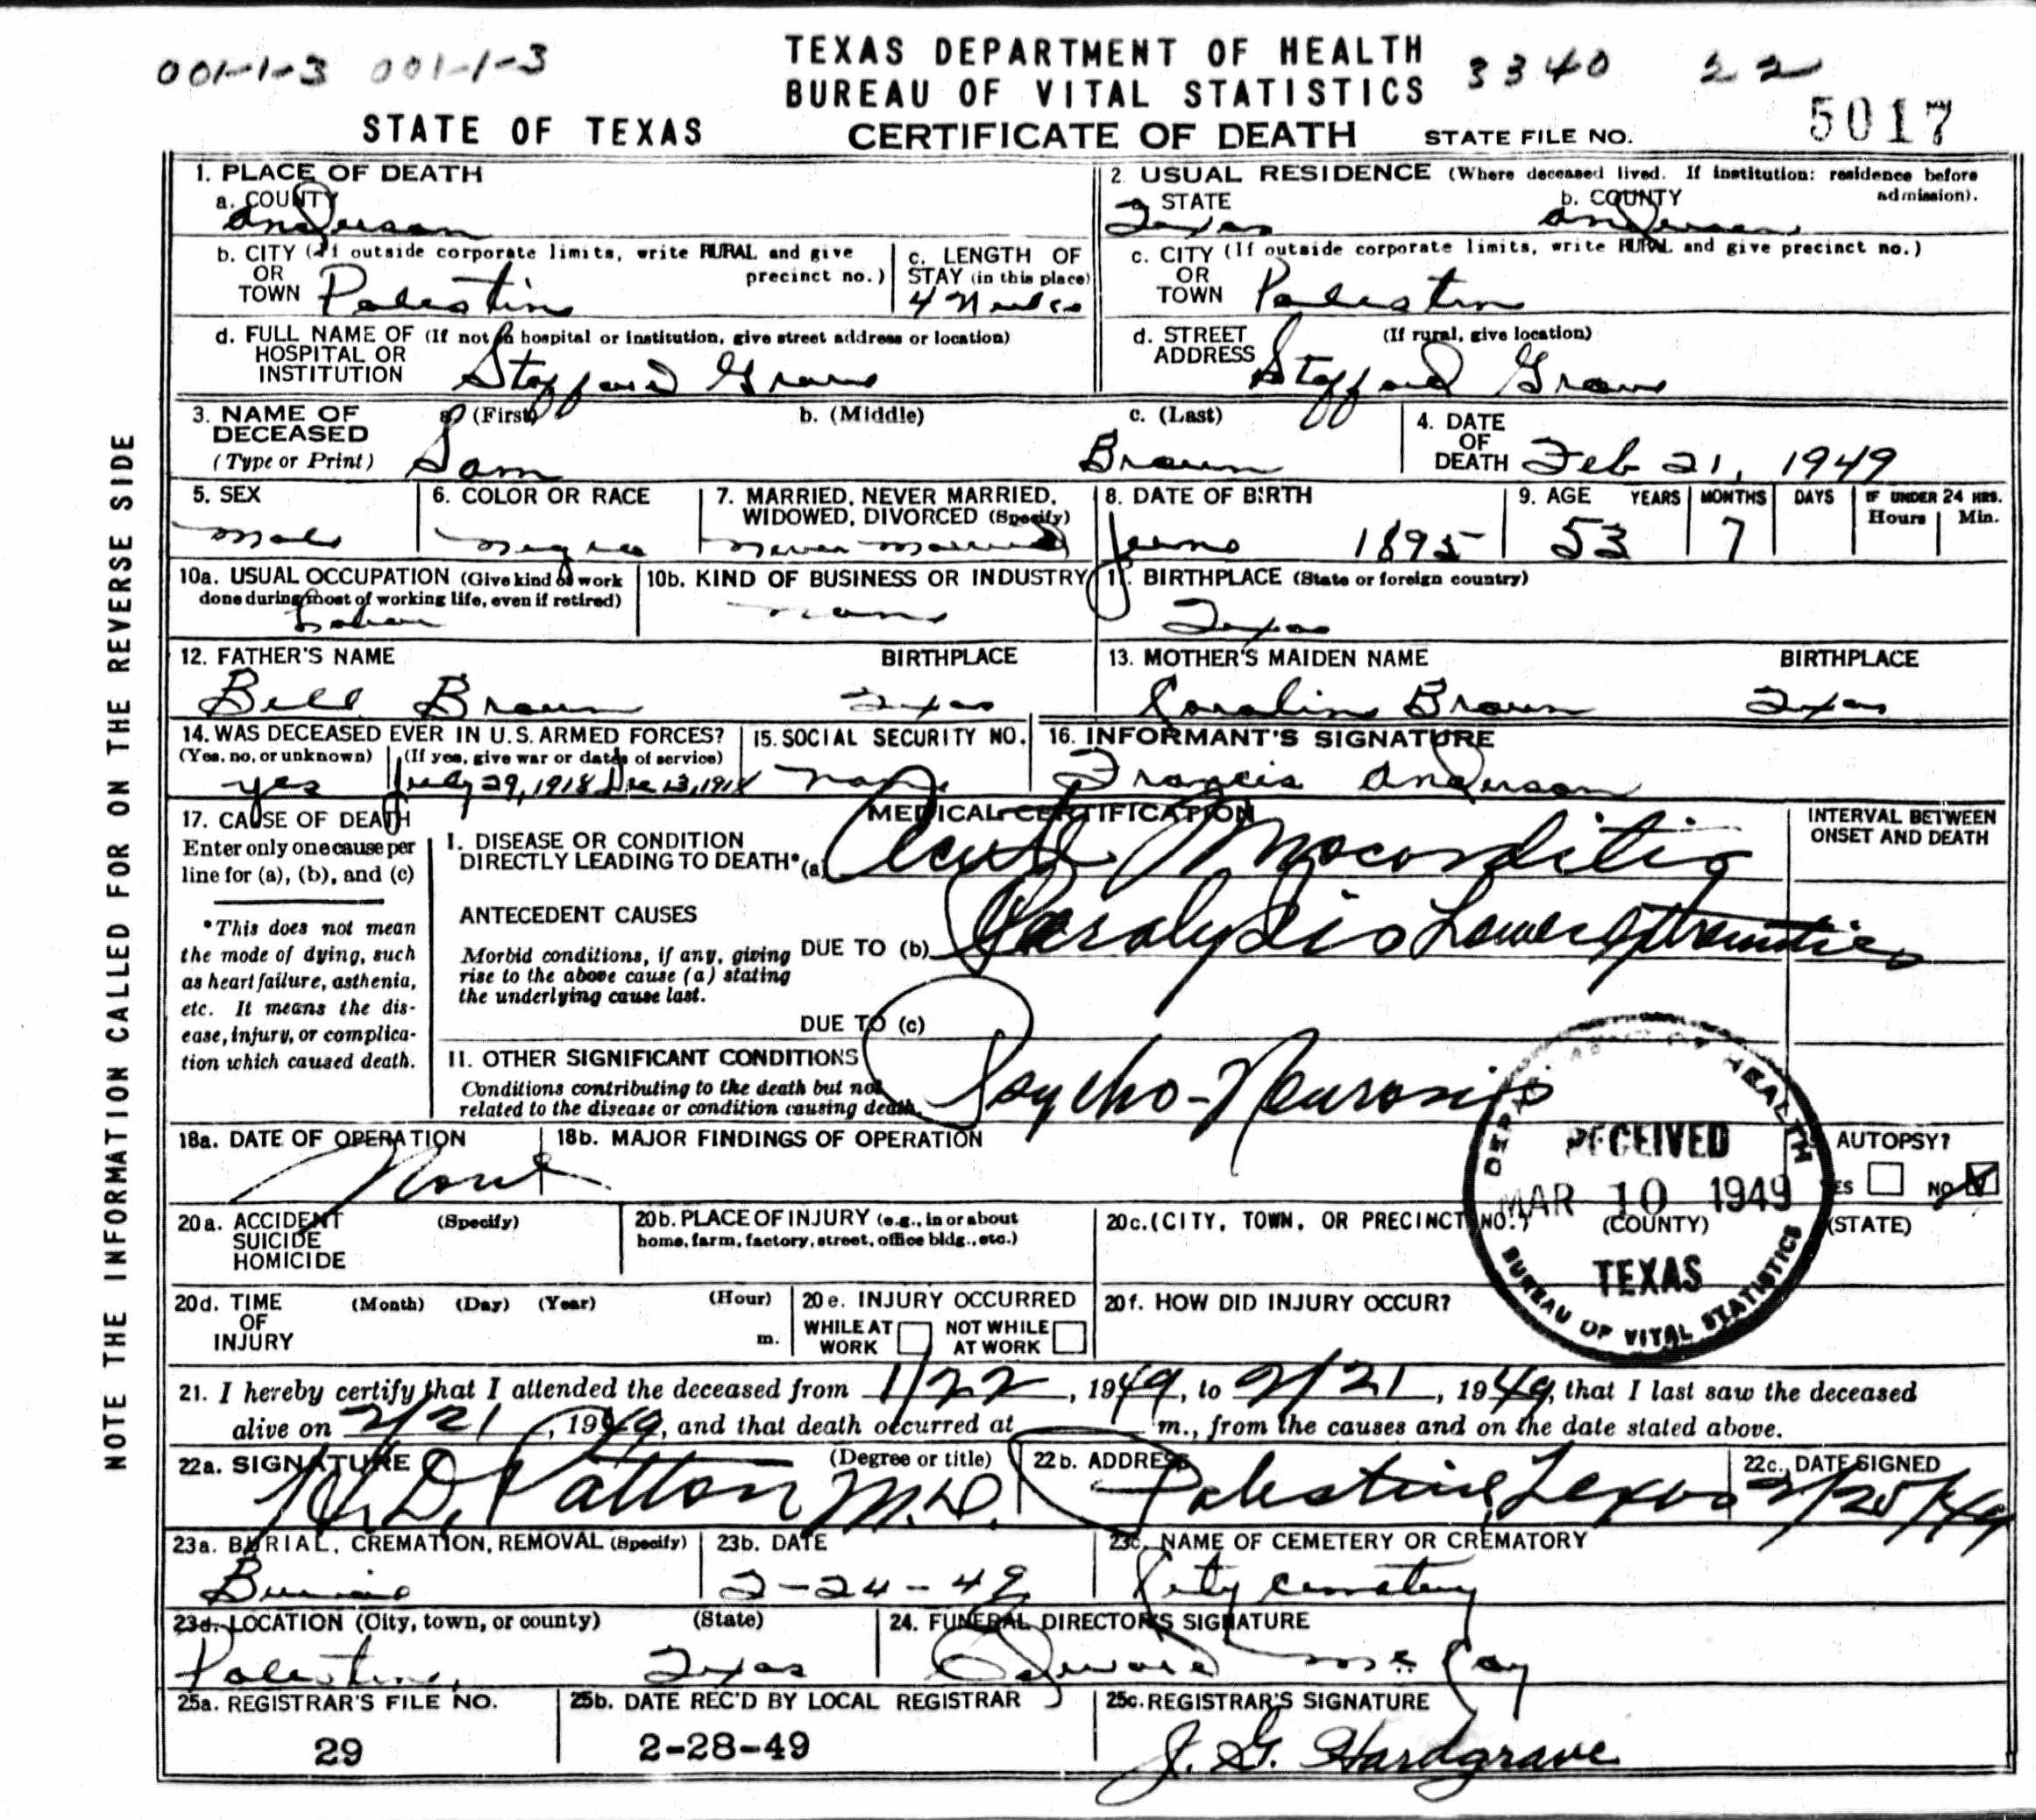 001-1-3 001-1-3
TEXAS DEPARTMENT OF HEALTH
3340 22
BUREAU OF VITAL STATISTICS
STATE OF TEXAS
CERTIFICATE OF DEATH
STATE FILE NO. 5017
NOTE THE INFORMATION CALLED FOR ON THE REVERSE SIDE
1. PLACE OF DEATH
a. COUNTY
Anderson
2. USUAL RESIDENCE (Where deceased lived. If institution: residence before admission).
a. STATE
Texas
b. COUNTY
Anderson
b. CITY (If outside corporate limits, write RURAL and give precinct no.)
OR
TOWN Palestine
c. LENGTH OF
STAY (in this place)
4
c. CITY (If outside corporate limits, write RURAL and give precinct no.)
OR
TOWN Palestine
d. FULL NAME OF (If not in hospital or institution, give street address or location)
HOSPITAL OR
INSTITUTION
Stafford
d. STREET
ADDRESS
(If rural, give location)
Stafford
3. NAME OF
DECEASED
(Type or Print)
a. (First)
Sam
b. (Middle)
c. (Last)
Brown
4. DATE
OF
DEATH Feb 21, 1949
5. SEX
Male
6. COLOR OR RACE
Negro
7. MARRIED, NEVER MARRIED,
WIDOWED, DIVORCED (Specify)
Never Married
8. DATE OF BIRTH
June 1895
9. AGE YEARS MONTHS DAYS IF UNDER 24 HRS.
Hours Min.
53 7
10a. USUAL OCCUPATION (Give kind of work
done during most of working life, even if retired)
Labor
10b. KIND OF BUSINESS OR INDUSTRY
None
11. BIRTHPLACE (State or foreign country)
Texas
12. FATHER'S NAME BIRTHPLACE
Bill Brown Texas
13. MOTHER'S MAIDEN NAME BIRTHPLACE
Caroline Brown Texas
14. WAS DECEASED EVER IN U.S. ARMED FORCES?
(Yes, no, or unknown) (If yes, give war or dates of service)
yes July 29, 1918 Dec 13, 1918
15. SOCIAL SECURITY NO.
None
16. INFORMANT'S SIGNATURE
Francis Anderson
17. CAUSE OF DEATH
Enter only one cause per
line for (a), (b), and (c)
*This does not mean
the mode of dying, such
as heart failure, asthenia,
etc. It means the dis-
ease, injury, or complica-
tion which caused death.
MEDICAL CERTIFICATION
INTERVAL BETWEEN
ONSET AND DEATH
I. DISEASE OR CONDITION
DIRECTLY LEADING TO DEATH* (a) Acute Myocarditis
ANTECEDENT CAUSES
Morbid conditions, if any, giving
rise to the above cause (a) stating
the underlying cause last.
DUE TO (b) Paralysis Lower Extremities
DUE TO (c)
II. OTHER SIGNIFICANT CONDITIONS
Conditions contributing to the death but not
related to the disease or condition causing death.
Psycho-Neurosis
18a. DATE OF OPERATION
None
18b. MAJOR FINDINGS OF OPERATION
AUTOPSY?
YES NO
DEPARTMENT OF HEALTH
RECEIVED
MAR 10 1949
TEXAS
BUREAU OF VITAL STATISTICS
20a. ACCIDENT
SUICIDE
HOMICIDE
(Specify)
20b. PLACE OF INJURY (e.g., in or about
home, farm, factory, street, office bldg., etc.)
20c. (CITY, TOWN, OR PRECINCT NO.) (COUNTY) (STATE)
20d. TIME
OF
INJURY
(Month) (Day) (Year) (Hour)
m.
20e. INJURY OCCURRED
WHILE AT
WORK
NOT WHILE
AT WORK
20f. HOW DID INJURY OCCUR?
21. I hereby certify that I attended the deceased from 1/22, 1949, to 2/21, 1949, that I last saw the deceased
alive on 2/21, 1949, and that death occurred at m., from the causes and on the date stated above.
22a. SIGNATURE (Degree or title)
H. D. Patton M.D.
22b. ADDRESS
Palestine, Texas
22c. DATE SIGNED
2/25/49
23a. BURIAL, CREMATION, REMOVAL (Specify)
Burial
23b. DATE
2-24-49
23c. NAME OF CEMETERY OR CREMATORY
City Cemetery
23d. LOCATION (City, town, or county) (State)
Palestine, Texas
24. FUNERAL DIRECTOR'S SIGNATURE
Edward McCoy
25a. REGISTRAR'S FILE NO.
29
25b. DATE REC'D BY LOCAL REGISTRAR
2-28-49
25c. REGISTRAR'S SIGNATURE
J. G. Hardgrave